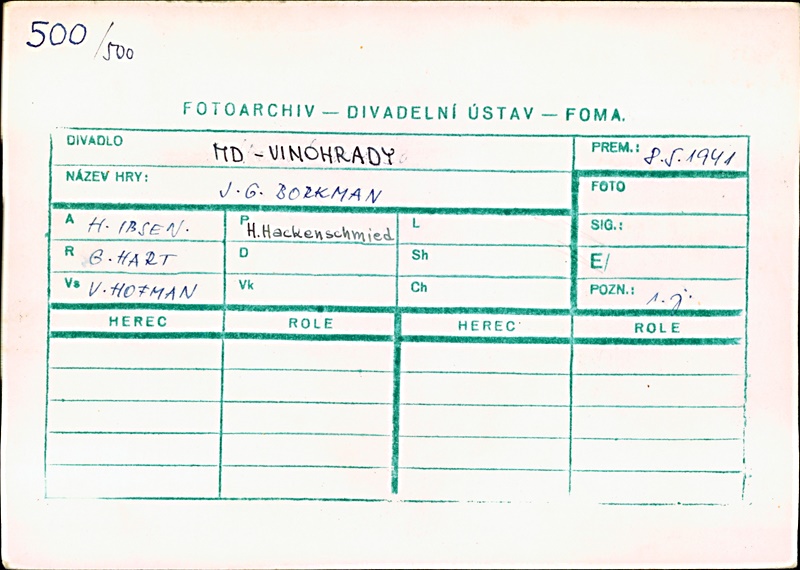 500/500
FOTOARCHIV — DIVADELNÍ ÚSTAV — FOMA.
DIVADLO MD - VINOHRADY PREM.: 8.5.1941
NÁZEV HRY: J. G. BORKMAN FOTO
A H. IBSEN. P H. Hackenschmied L SIG.:
R B. HART D Sh E/
Vs V. HOFMAN Vk Ch POZN.: 1. j.
HEREC ROLE HEREC ROLE